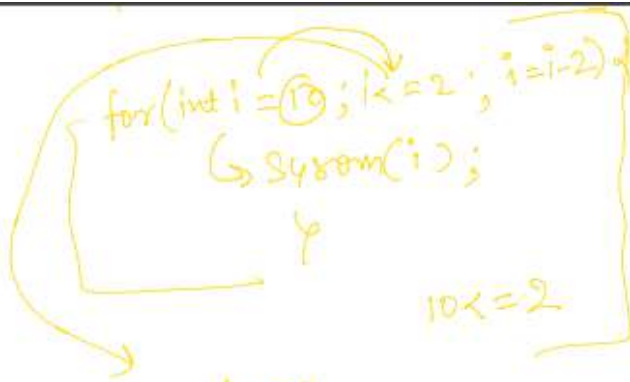 for(int i = 10; i<=2; i=i-2){
Sysom(i);
}
10<=2